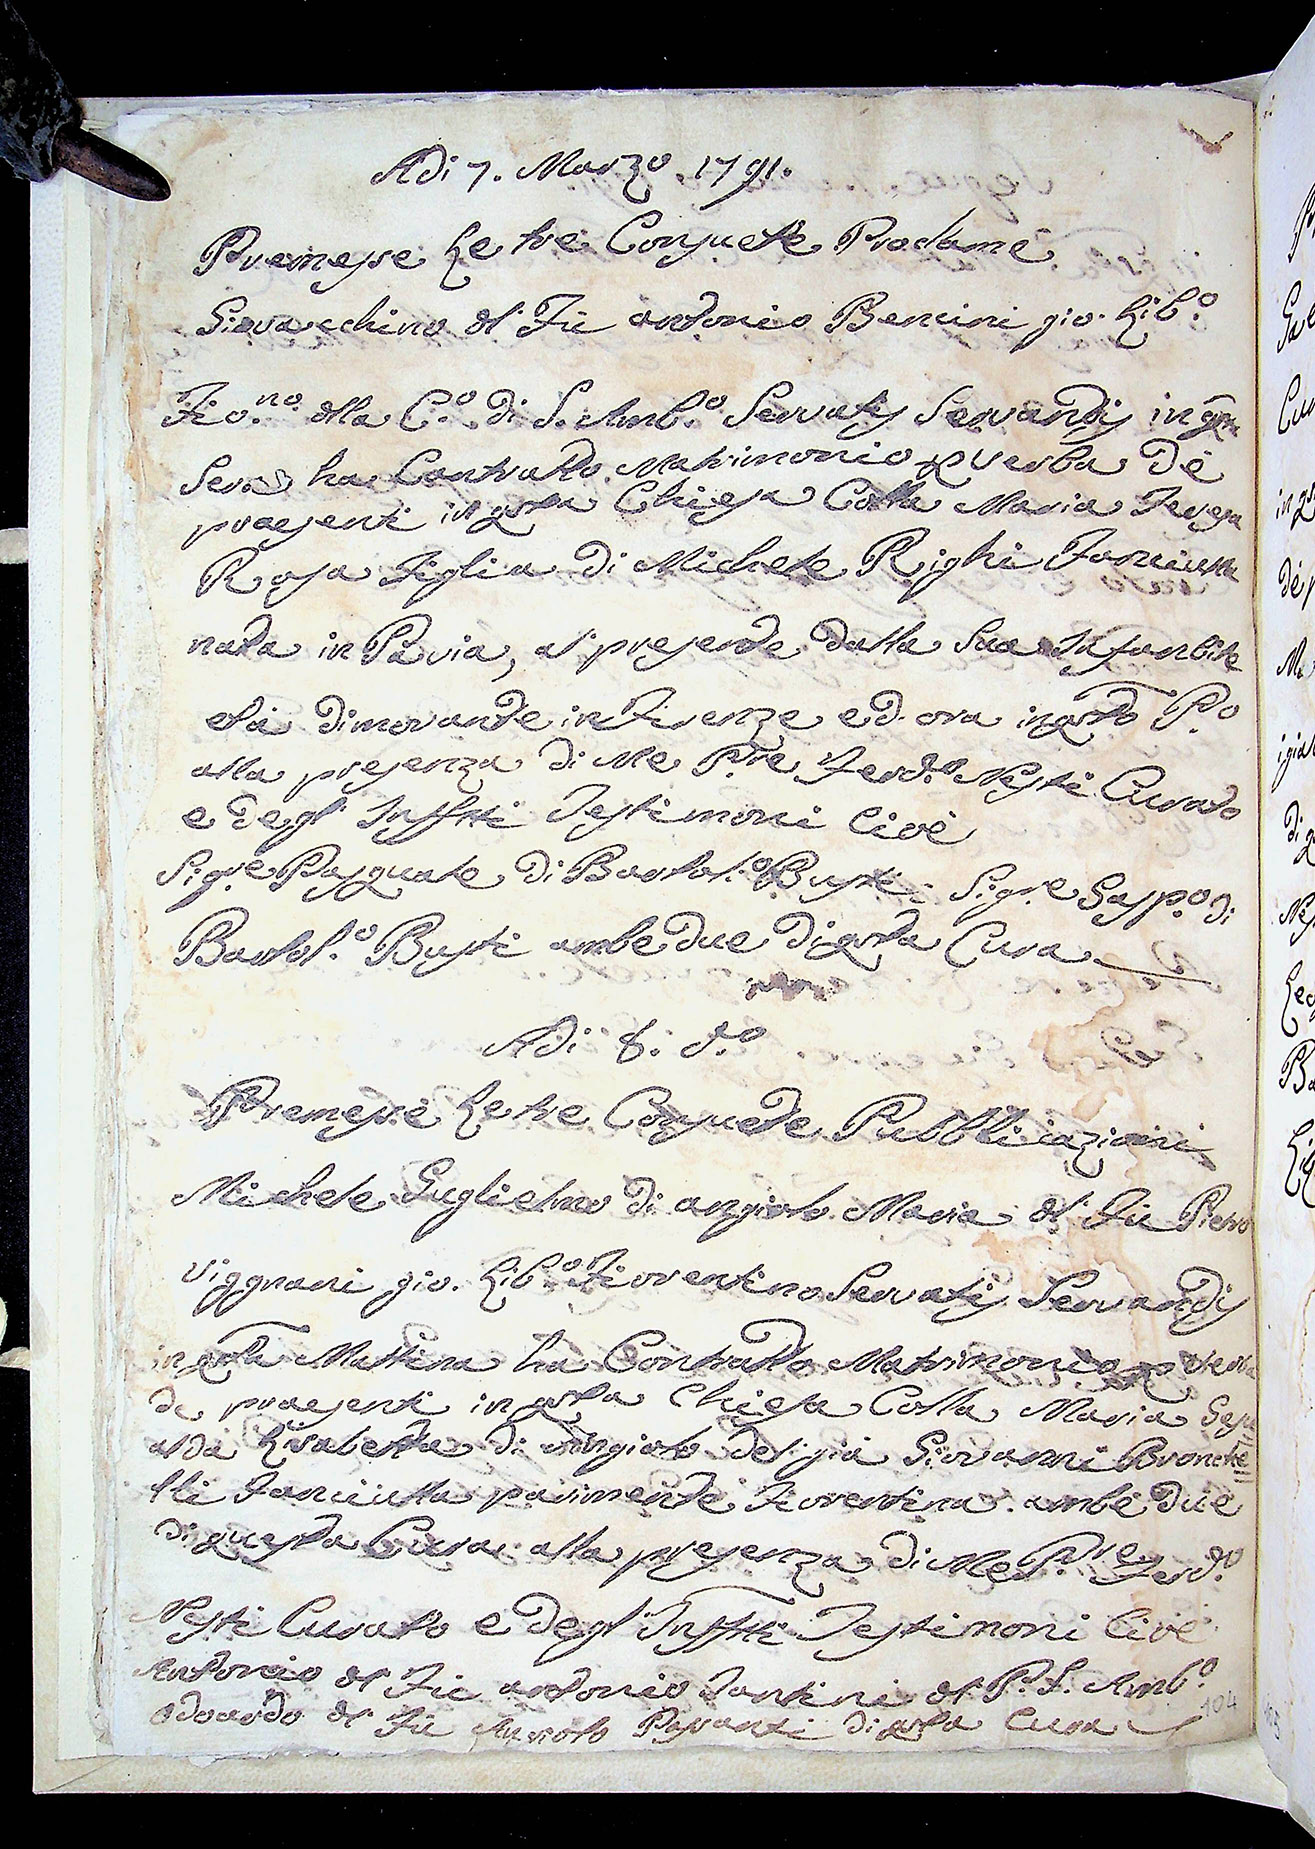 Adi 7. Marzo 1791.
Premesse Le tre Consuete Proclame
Giovacchino dl' Fu Antonio Bencini gio. Lib.o
Fio.no della C.o di S. Amb.o Servatis Servandis in gsta
Sera ha Contratto Matrimonio p verba de
praesenti in qsta Chiesa Colla Maria Teresa
Rosa Figlia di Michele Righi Fanciulla
nata in Pavia, al presente dalla Sua Infantile
età dimorante in Firenze ed. ora in qsto P.o
alla presenza di Me P.re Ferd.o Nesti Curato
e degl' Infstti Testimoni Cioè
Sig.re Pasquale di Bartol.o Busti = Sig.re Gasp.o di
Bartol.o Busti ambedue di qsta Cura
Adi 8. d.o
Premesse Le tre Consuete Pubblicazioni
Michele Guglielmo di Angiolo Maria dl' Fu Pietro
Viggnani gio. Lib.o Fiorentino Servatis Servandis
in qsta Mattina ha Contratto Matrimonio p verba
de praesenti in qsta Chiesa Colla Maria Gesu
alda di Angiolo del già Giovanni Bronche=
lli Fanciulla parimente Fiorentina ambe due
di questa Cura alla presenza di Me P.re Ferd.o
Nesti Curato e degl' Infstti Testimoni Cioè
Antonio dl Fu Antonio Santini dl P. S. Amb.o
Odoardo dl Fu Angiolo di qsta Cura
104